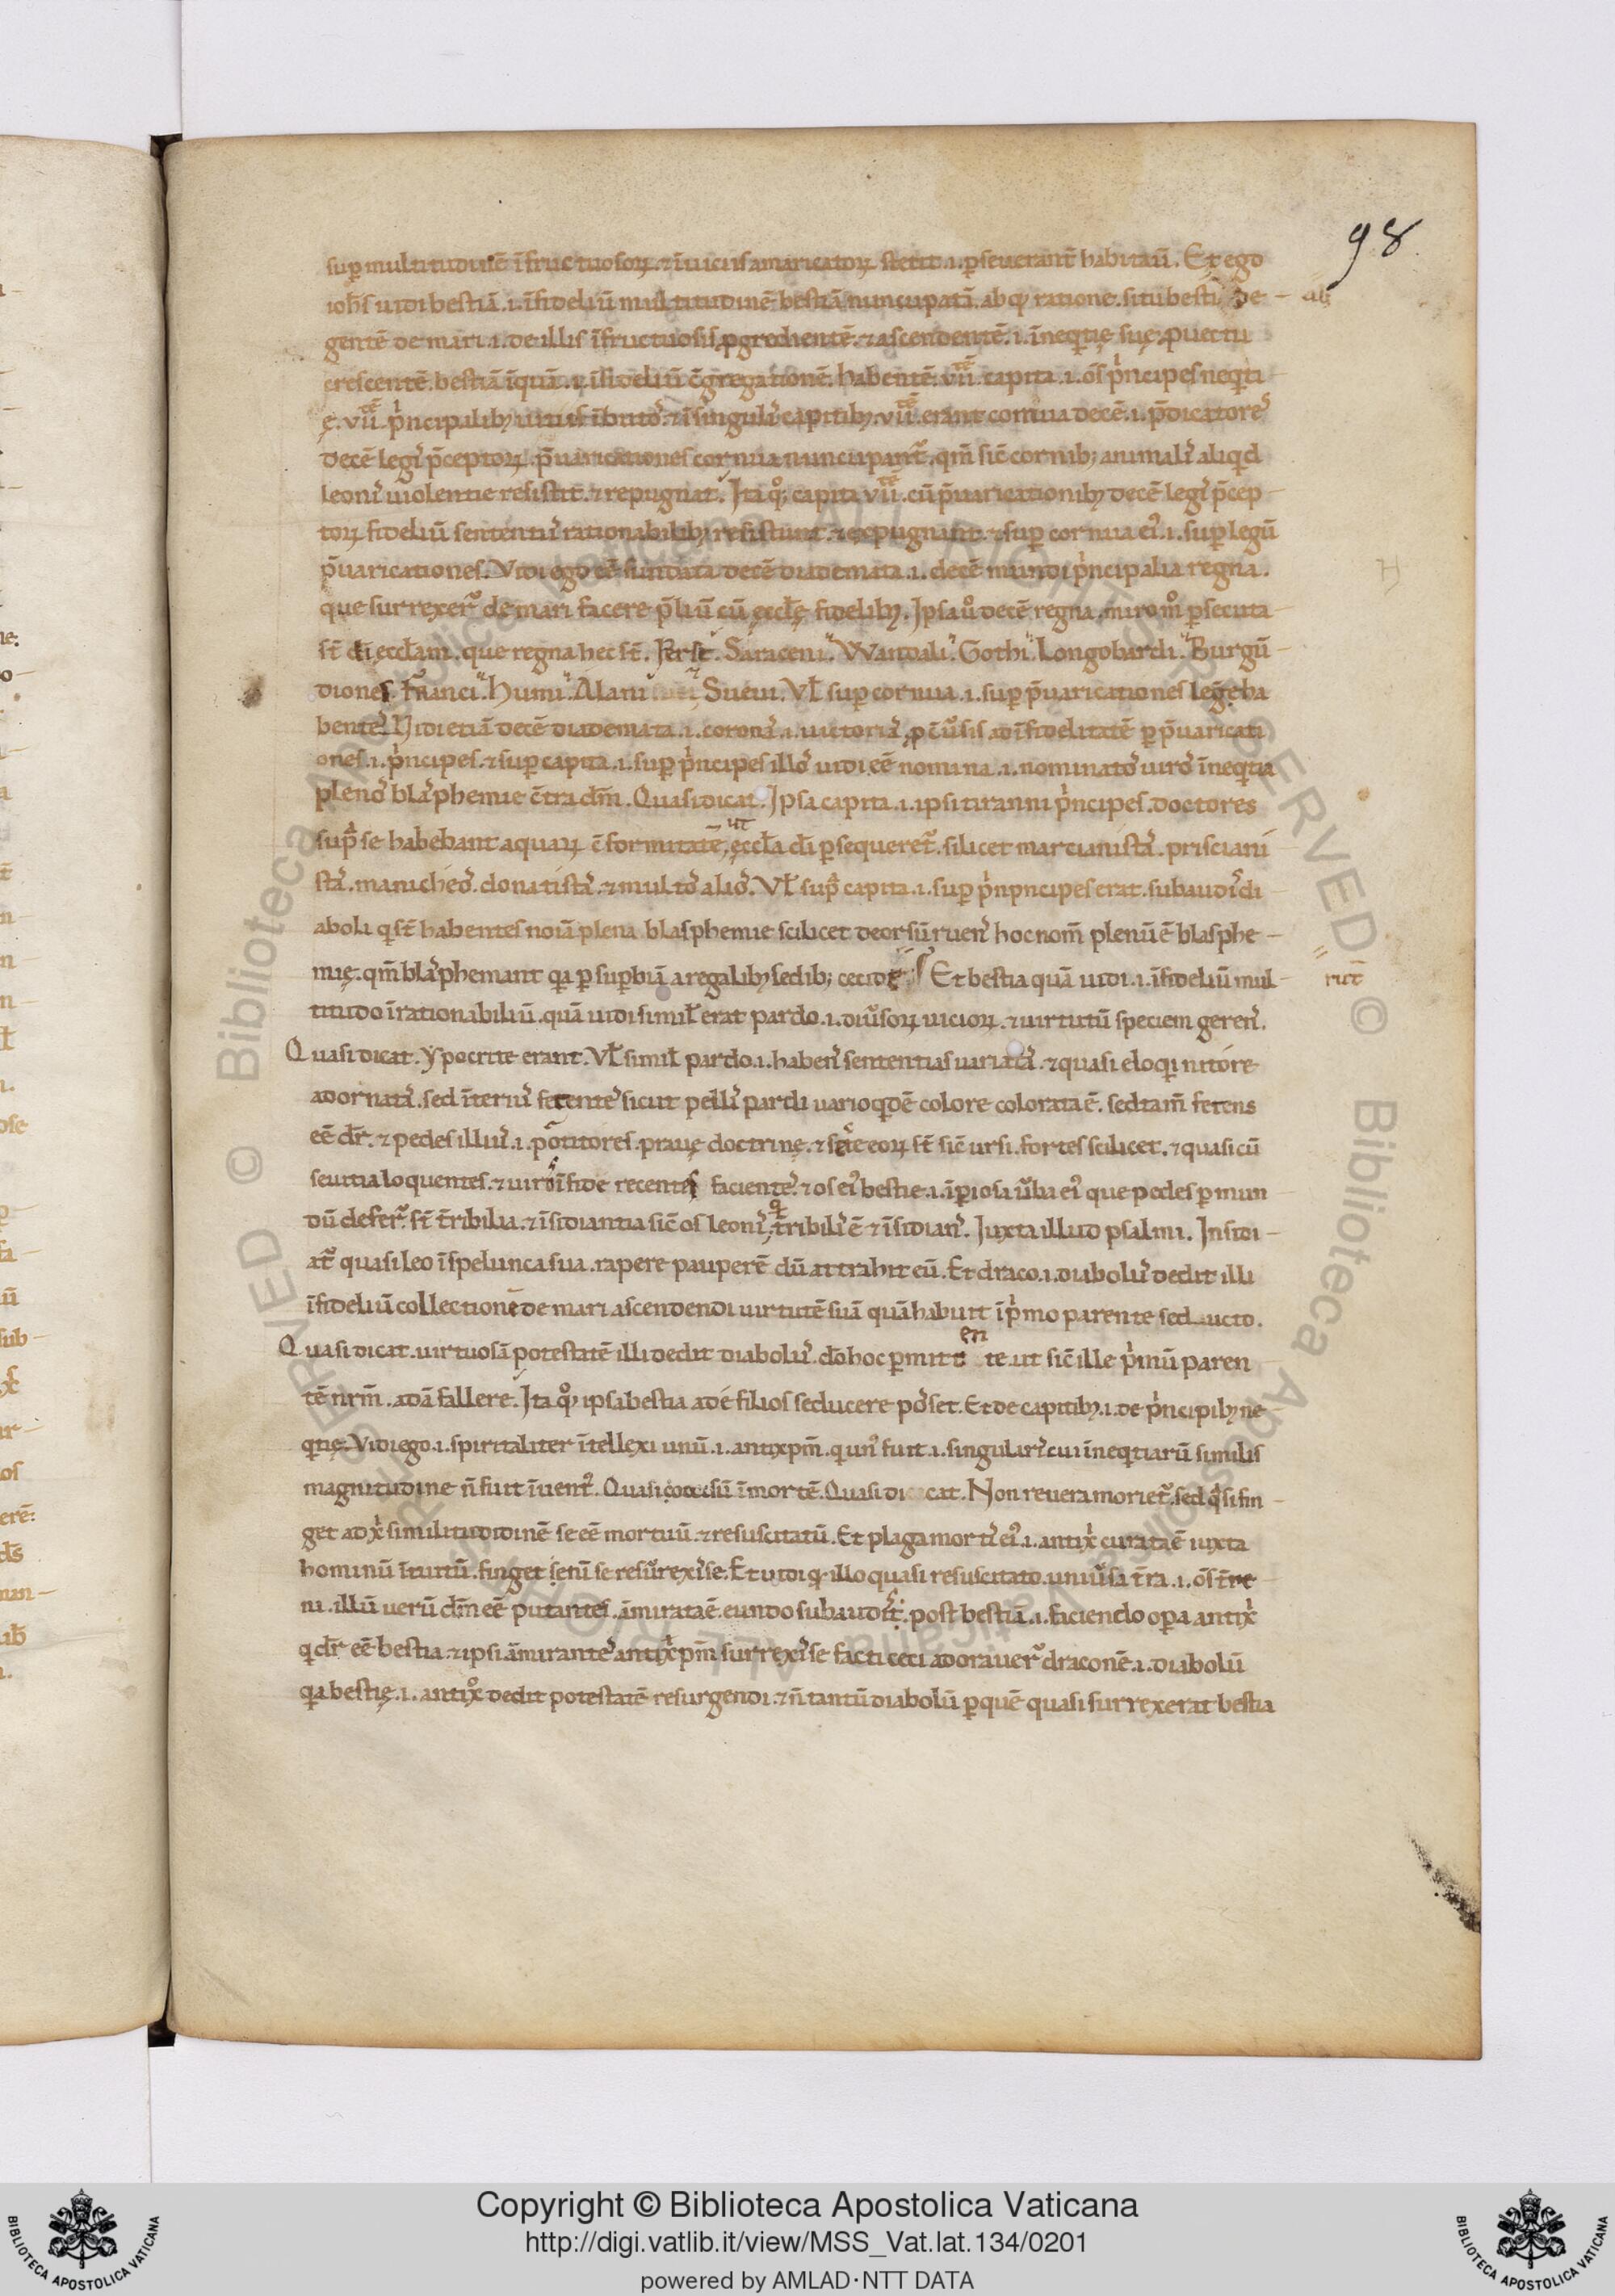 98
sup multitudinē īfructuosoꝝ. ⁊ īuiciis amaricatoꝝ stetit .i. pseuerant̄ habitau. Et ego
ioh̄s uidi bestiā .i. īfideliū multitudinē bestiā nuncupatā. absq; ratione. situ besti de
gentē de mari .i. de illis īfructuosis pgredientē. ⁊ ascendentē .i. īneqtię suę puectu
crescentē. bestiā īquā .i. īfideliū c̄gregationē. habentē .vii. capita .i. ōs pncipes neqti
ę. vii. pncipalib; uiciis
decē legis p̄ceptoꝝ. p̄uaricationes cornua nuncupant̄. qm̄ sic̄ cornib; animalis aliqd
leonis uiolentie resistit. ⁊ repugnat. Ita q; capita vii. cū p̄uaricationib; decē legis p̄cep
toꝝ fideliū sententiis rationabilib; resistunt. ⁊ expugnant. ⁊ sup cornua eiꝰ .i. sup legū
p̄uaricationes. Vidi ego eē fundata decē diademata .i. decē mundi pncipalia regna.
que surrexer̄ de mari facere p̄liū cū ęcctę fidelib;. Ipsa u° decē regna. miro m° psecuta
st̄ di ęcctam. que regna hec st̄. Perse. Saraceni. Wandali. Gothi. Longobardi. Burgū
diones. Franci. Huni. Alani Sueui. Vt sup cornua .i. sup p̄uaricationes legę ha
bentes. Vidi etiā decē diademata .i. coronas .i. uictorias, p c̄uersis ad īfidelitatē p p̄uaricati
ones .i. pncipes. ⁊ sup capita .i. sup pncipes illos uidi eē nomina .i. nominatos uiros īneqtia
plenos blasphemie c̄tra dm̄. Quasi dicat. Ipsa capita .i. ipsi tiranni pncipes. doctores
supra se habebant aquaꝝ c̄formitatē, ut ęccta di psequeret̄. silicet marcianistas. prisciani
stas. manicheos. donatistas. ⁊ multos alios. Vt supra capita .i. sup pnpncipes erat. subaudis di
aboli q st̄ habentes noīa plena blasphemie scilicet deorsū ruens hoc nom̄ plenū ē blasphe
mię. qm̄ blasphemant qa p supbiā a regalib; sedib; cecide Et bestia quā uidi .i. īfideliū mul
rut̄
titudo īrationabiliū. quā uidi similis erat pardo .i. diuersoꝝ uicioꝝ. ⁊ uirtutū speciem gerens.
Quasi dicat. Ypocrite erant. Vt similis pardo .i. habens sententias uariatas. ⁊ quasi eloqi nitore
adornatas. sed īterius fetentes sicut pellis pardi uario qdē colore colorata ē. sed tam̄ fetens
eē dr̄. ⁊ pedes illius .i. potitores. prauę doctrinę. ⁊ eoꝝ st̄ sic̄ ursi. fortes scilicet. ⁊ quasi cū
seuitia loquentes. ⁊ uiros īfide recentes facientes. ⁊ os eiꝰ bestie .i. īpiosa uba eiꝰ que pedes p mun
dū defer̄. st̄ t̄ribilia. ⁊ īsidiantia sic̄ os leonis, q t̄ribilis ē ⁊ īsidians. Iuxta illud psalmi. Insidi
at̄ quasi leo īspelunca sua. rapere pauperē dū attrahit eū. Et draco .i. diabolus dedit illi
īfideliū collectione de mari ascendendi uirtutē suā quā habuit ī pmo parente seducto.
Quasi dicat. uirtuosā potestatē illi dedit diabolus. dō hoc pmitt en te ut sic̄ ille pmū paren
tē nrm̄. adā fallere. Ita q; ipsa bestia ade filios seducere posset. Et de capitib; .i. de pncipib; ne
qtię. Vidi ego .i. spiritaliter ītellexi unū .i. antixpm̄. q unꝰ fuit .i. singularis cui īneqtiarū similis
magnitudine n̄ fuit īuentꝰ. Quasi occisū ī mortē. Quasi di cat. Non reuera moriet̄. sed q si fin
get ad xi similitudidinē se eē mortuū. ⁊ resuscitatū. Et plaga mortis eiꝰ .i. antixi curata ē iuxta
hominū ītuitū. finget enī se resurrexisse. Et uidi q illo quasi resuscitato. uniuersa t̄ra .i. ōs t̄re
ni. illū uerū dm̄ eē putantes. āmirata ē. eundo subaudit̄. post bestiā .i. faciendo opa antixi
q dr̄ eē bestia. ⁊ ipsi āmirantes antixpm̄ surrexisse facti ceci adorauer̄ draconē .i. diabolū
qa bestię .i. antix° dedit potestatē resurgendi. ⁊ n̄ tantū diabolū p quē quasi surrexerat bestia
Copyright © Biblioteca Apostolica Vaticana
http://digi.vatlib.it/view/MSS_Vat.lat.134/0201
powered by AMLAD·NTT DATA